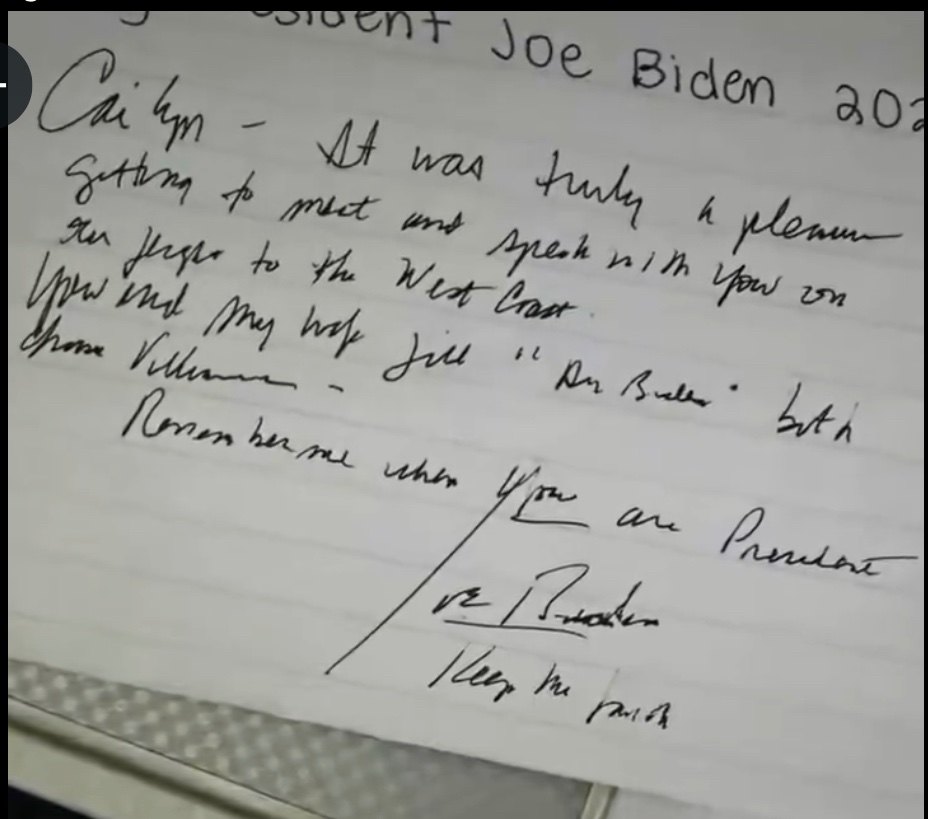 resident Joe Biden 202
Caitlyn - It was truly a pleasure
getting to meet and speak with you on
our to the West Coast.
You and my wife Jill "Dr Biden" both
chose Villanova -
Remember me when you are President
Joe Biden
Keep the faith